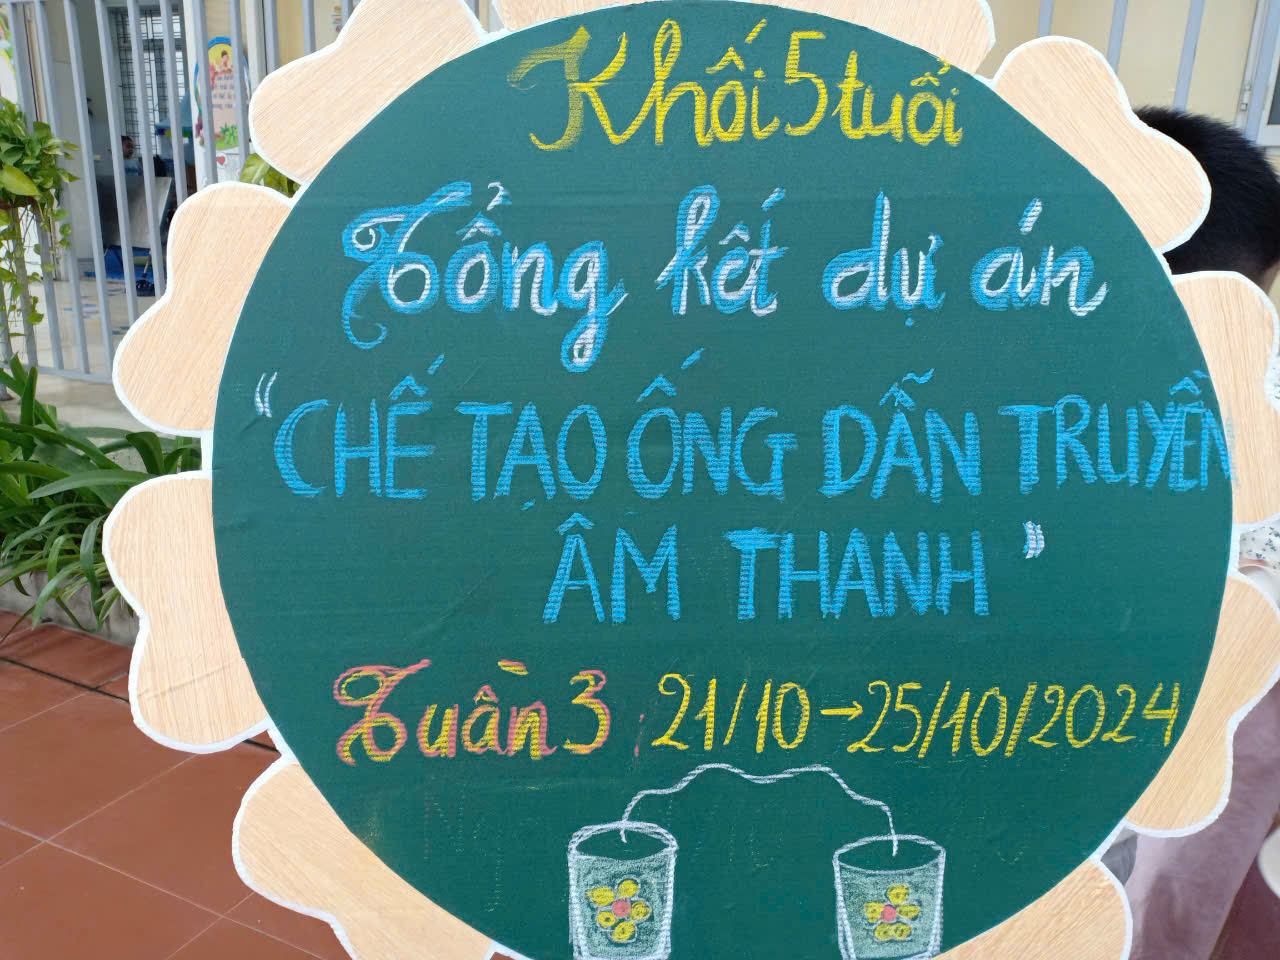 Khối 5 tuổi
Tổng kết dự án
"CHẾ TẠO ỐNG DẪN TRUYỀN
ÂM THANH"
Tuần 3: 21/10→25/10/2024